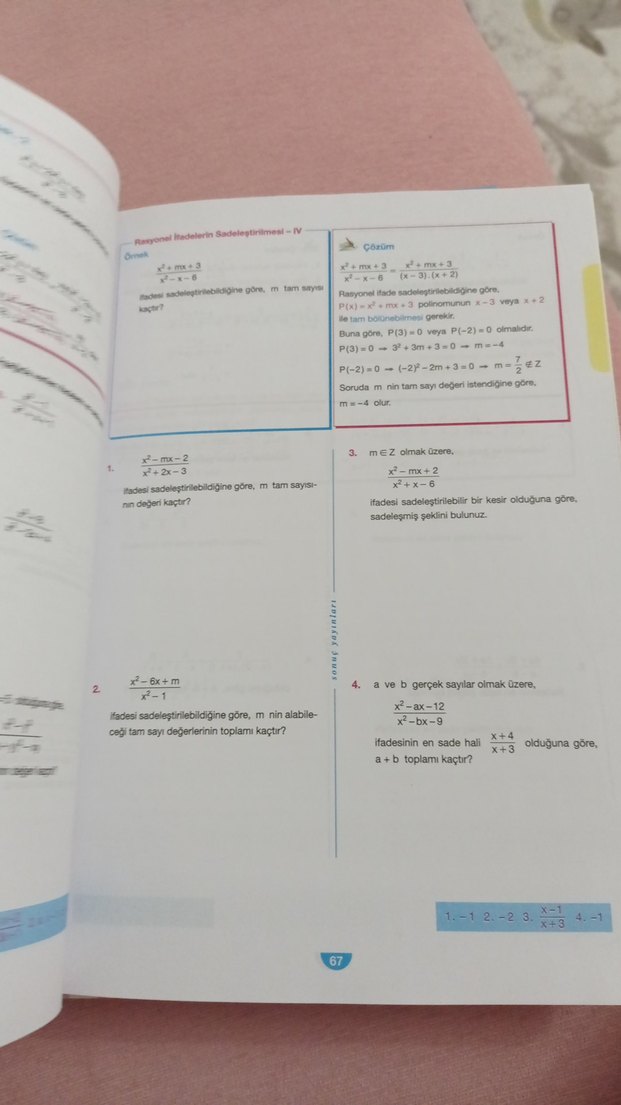 Rasyonel İfadelerin Sadeleştirilmesi – IV
Örnek
x² + mx + 3
x² – x – 6
ifadesi sadeleştirilebildiğine göre, m tam sayısı
kaçtır?
Çözüm
x² + mx + 3 / x² – x – 6 = x² + mx + 3 / (x – 3) . (x + 2)
Rasyonel ifade sadeleştirilebildiğine göre,
P(x) = x² + mx + 3 polinomunun x – 3 veya x + 2
ile tam bölünebilmesi gerekir.
Buna göre, P(3) = 0 veya P(–2) = 0 olmalıdır.
P(3) = 0 ⇒ 3² + 3m + 3 = 0 ⇒ m = –4
P(–2) = 0 ⇒ (–2)² – 2m + 3 = 0 ⇒ m = 7/2 ∉ Z
Soruda m nin tam sayı değeri istendiğine göre,
m = –4 olur.
1. x² – mx – 2
x² + 2x – 3
ifadesi sadeleştirilebildiğine göre, m tam sayısı-
nın değeri kaçtır?
2. x² – 6x + m
x² – 1
ifadesi sadeleştirilebildiğine göre, m nin alabile-
ceği tam sayı değerlerinin toplamı kaçtır?
sonuç yayınları
3. m ∈ Z olmak üzere,
x² – mx + 2
x² + x – 6
ifadesi sadeleştirilebilir bir kesir olduğuna göre,
sadeleşmiş şeklini bulunuz.
4. a ve b gerçek sayılar olmak üzere,
x² – ax – 12
x² – bx – 9
ifadesinin en sade hali x + 4 / x + 3 olduğuna göre,
a + b toplamı kaçtır?
1. –1 2. –2 3. x – 1 / x + 3 4. –1
67